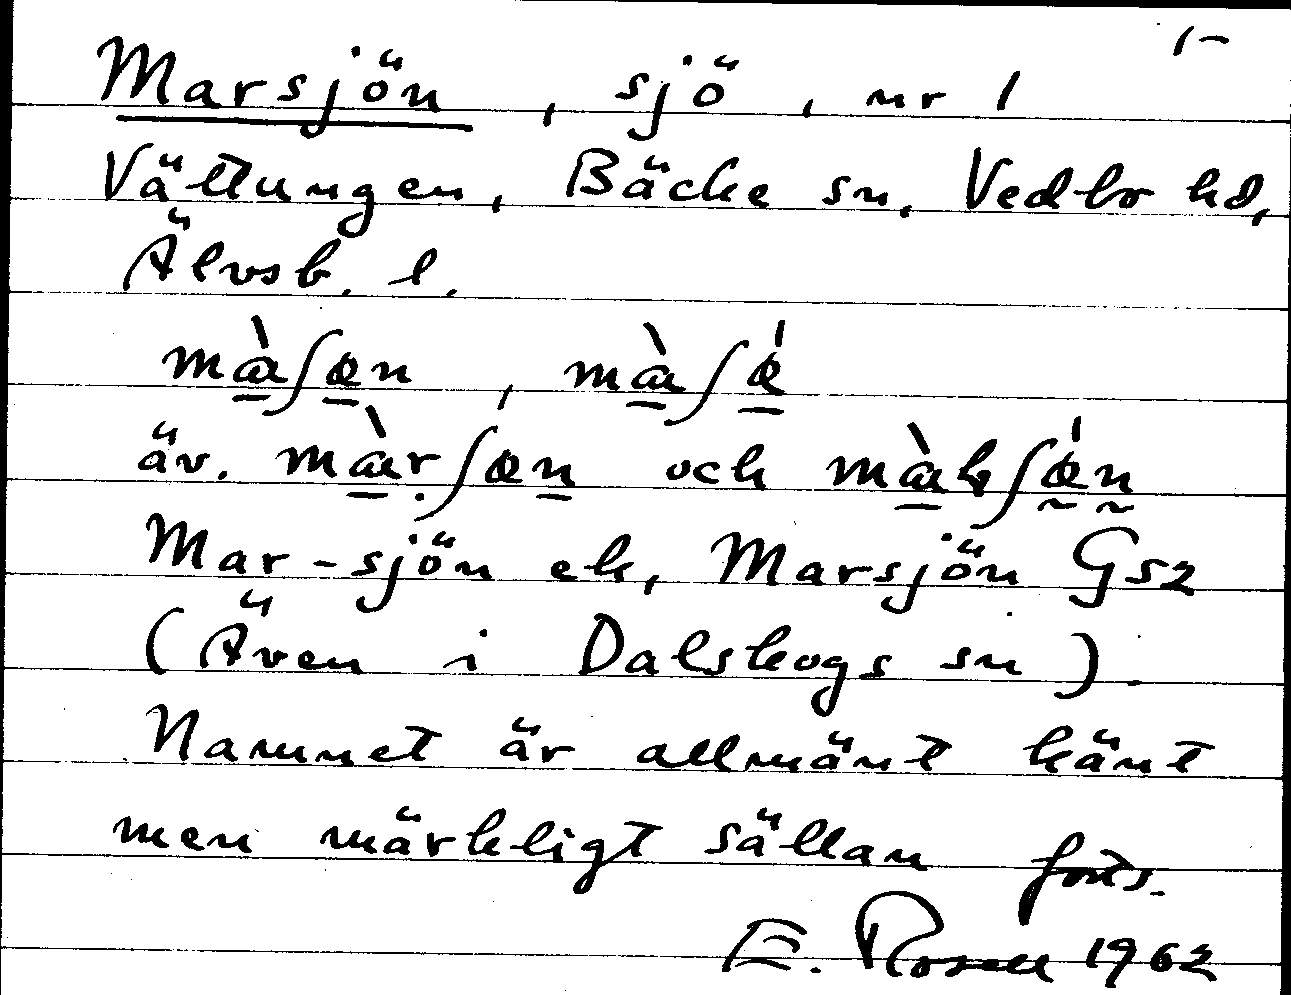 1-
Marsjön, sjö, nr 1
Vättungen, Bäcke sn, Vedbo hd,
Älvsb. l.
màʃøn, màʃǿ
äv. màrʃøn och màkʃǿn
Mar-sjön ek, Marsjön Gsz
(Även i Dalskogs sn).
Namnet är allmänt känt
men märkligt sällan forts.
E. Rosell 1962